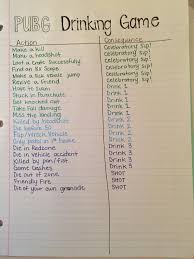 PUBG Drinking Game
Action Consequence
Make a kill Celebratory Sip!
Make a headshot Celebratory Sip!
Loot a crate successfully Celebratory Sip!
Find an 8x Scope Celebratory Sip!
Make a sick vehicle jump Celebratory Sip!
Revive a friend Celebratory Sip!
Have to Swim Drink 1
Stuck in Parachute Drink 1
Get knocked out Drink 1
Take Fall damage Drink 1
Miss the landing Drink 1
Killed by headshot Drink 2
Die before 50 Drink 2
Flip/Wreck Vehicle Drink 2
Only pistol in 1st house Drink 2
Die in Redzone Drink 3
Die in vehicle accident Drink 3
Killed by pan/fist Drink 3
Game Crashes Drink 3
Die out of zone SHOT
Friendly Fire SHOT
Die of your own grenade SHOT